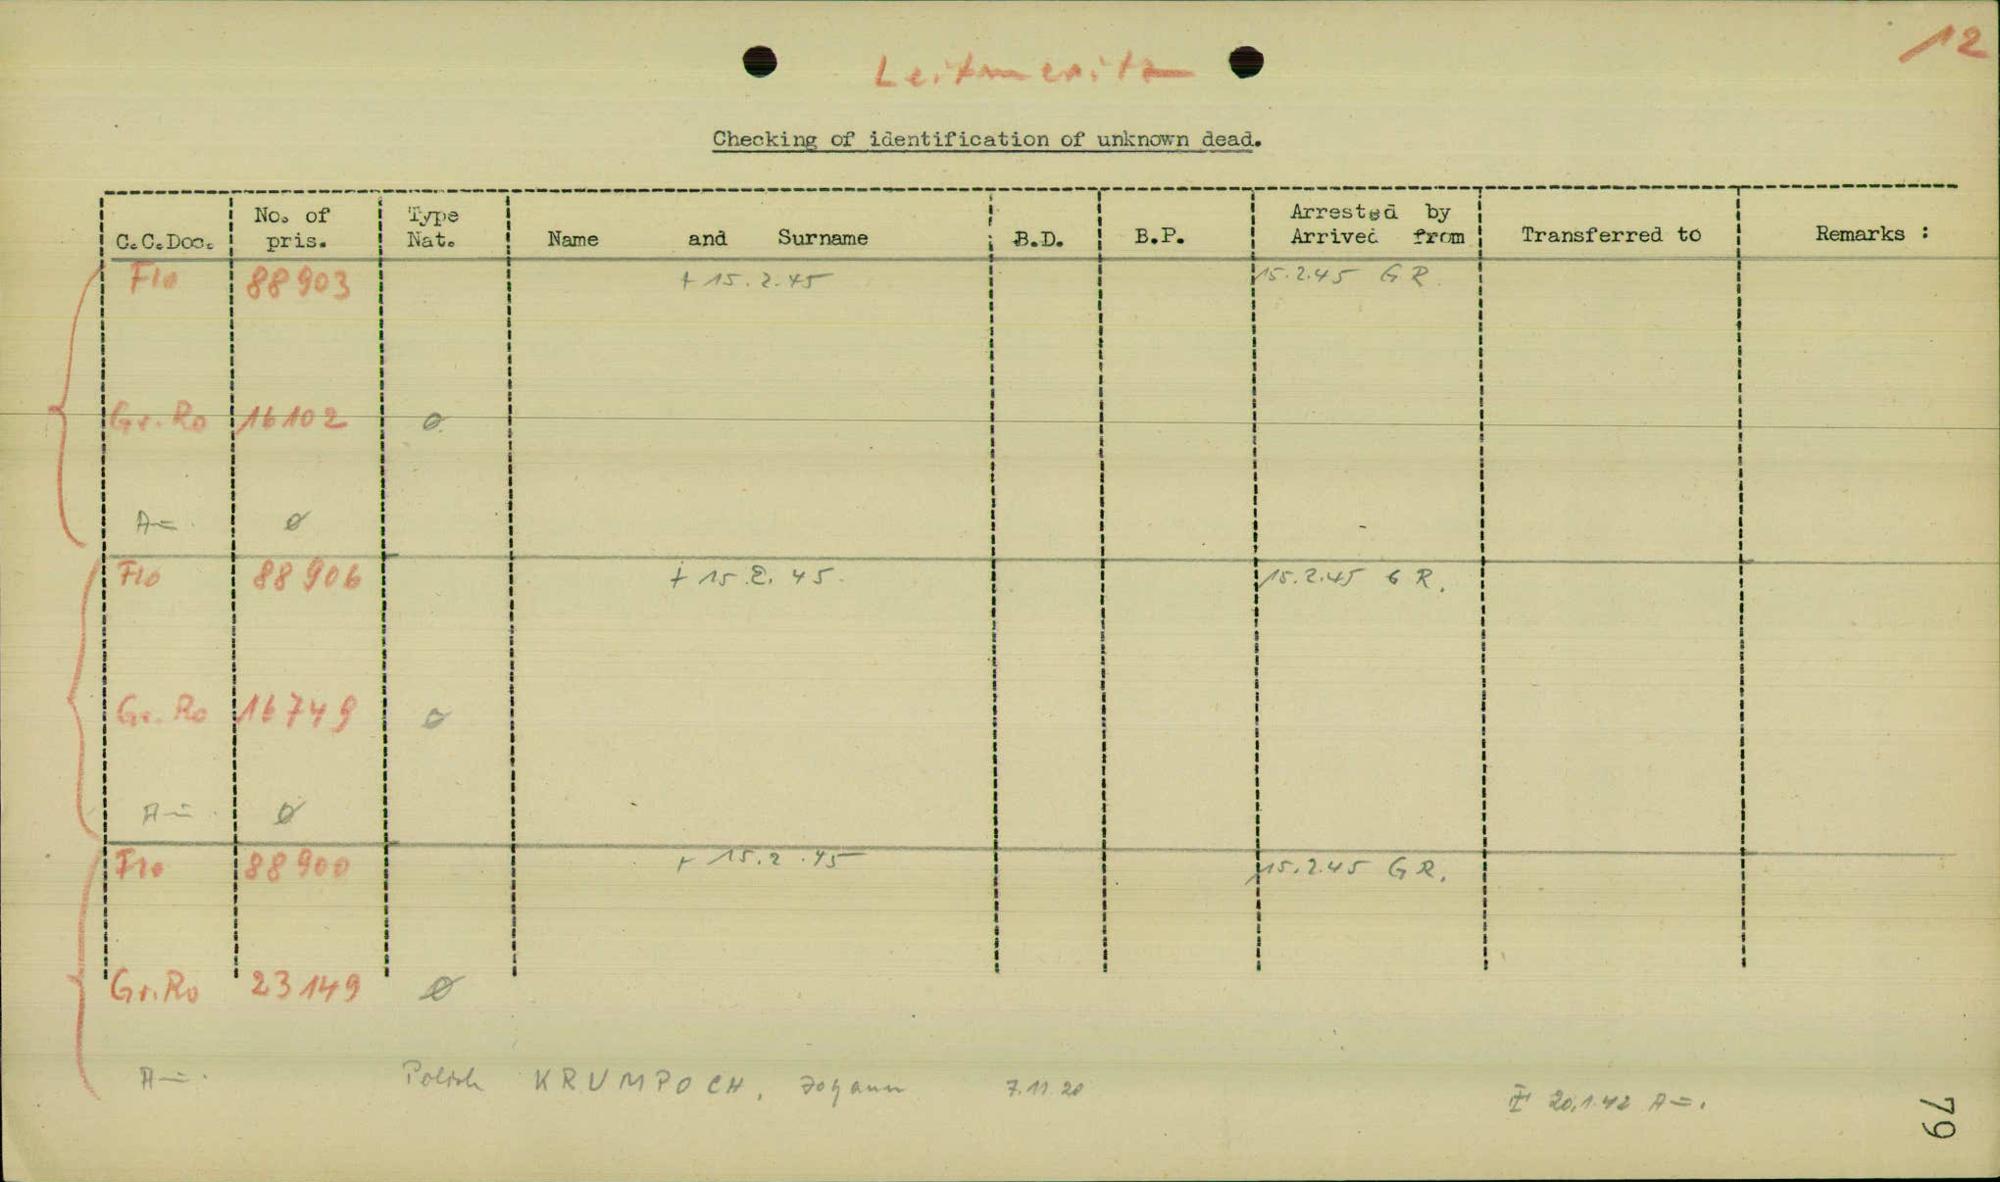 12
Leitmeritz
Checking of identification of unknown dead.
C.C.Doc. No. of pris. Type Nat. Name and Surname B.D. B.P. Arrested by Arrived from Transferred to Remarks :
Flo 88903 + 15.2.45 15.2.45 G R.
Gr.Ro 16102 ø
A=. ø
Flo 88906 + 15.2.45. 15.2.45 G R.
Gr.Ro 16749 ø
A=. ø
Flo 88900 + 15.2.45 15.2.45 G R.
Gr.Ro 23149 ø
A=. Polish KRUMPOCH, Johann 7.11.20 20.1.42 A=.
79